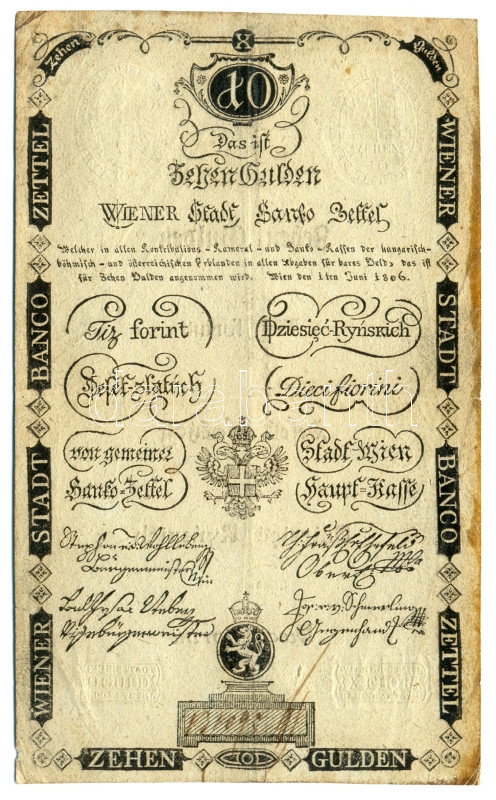 X
Zehen Gulden
10
Das ist
Zehen Gulden
WIENER Stadt Banko Zettel
Welcher in allen Kontributions - Kameral - und Banko - Kassen der hungarisch-
böhmisch - und österreichischen Erblanden in allen Abgaben für bares Geld, das ist
für Zehen Gulden angenommen wird. Wien den 1ten Juni 1806.
Tiz forint
Dziesięć-Ryńskich
Deset-zlatých
Dieci fiorini
von gemeiner
Stadt-Wien
Banko-Zettel
Haupt-Kasse
Stephan v. Wohlleben
Bürgermeister
Ober
Vizebürgermeister
Gegenhand
WIENER STADT BANCO ZETTEL
WIENER STADT BANCO ZETTEL
ZEHEN GULDEN
darabanth